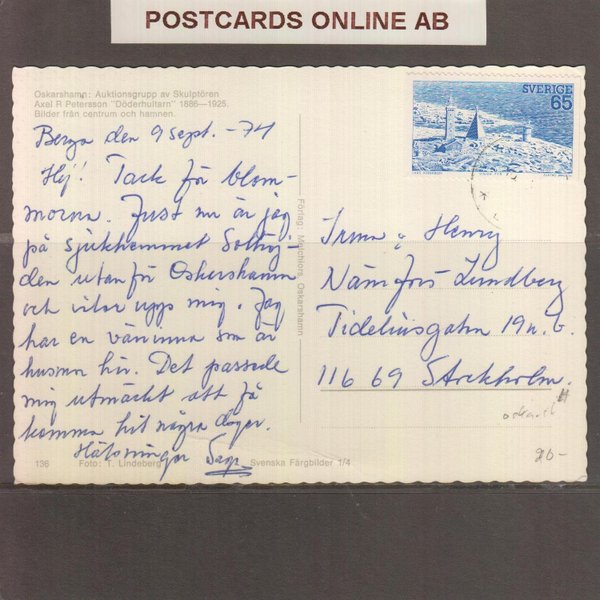 POSTCARDS ONLINE AB
Oskarshamn: Auktionsgrupp av Skulptören
Axel R Petersson "Döderhultarn" 1886—1925.
Bilder från centrum och hamnen.
SVERIGE
65
Berga den 9 sept. -74
Hej! Tack för blom-
morna. Just nu är jag
på sjukhemmet
den utanför Oskarshamn
och vilar upp mig. Jag
har en väninna som är
husmor här. Det passade
mig utmärkt att få
komma hit några dagar.
Hälsningar
136 Foto: T. Lindeberg Svenska Färgbilder 1/4
Förlag: Melchiors, Oskarshamn
Irma & Henry
Lundberg
19 n.b.
116 69 Stockholm.